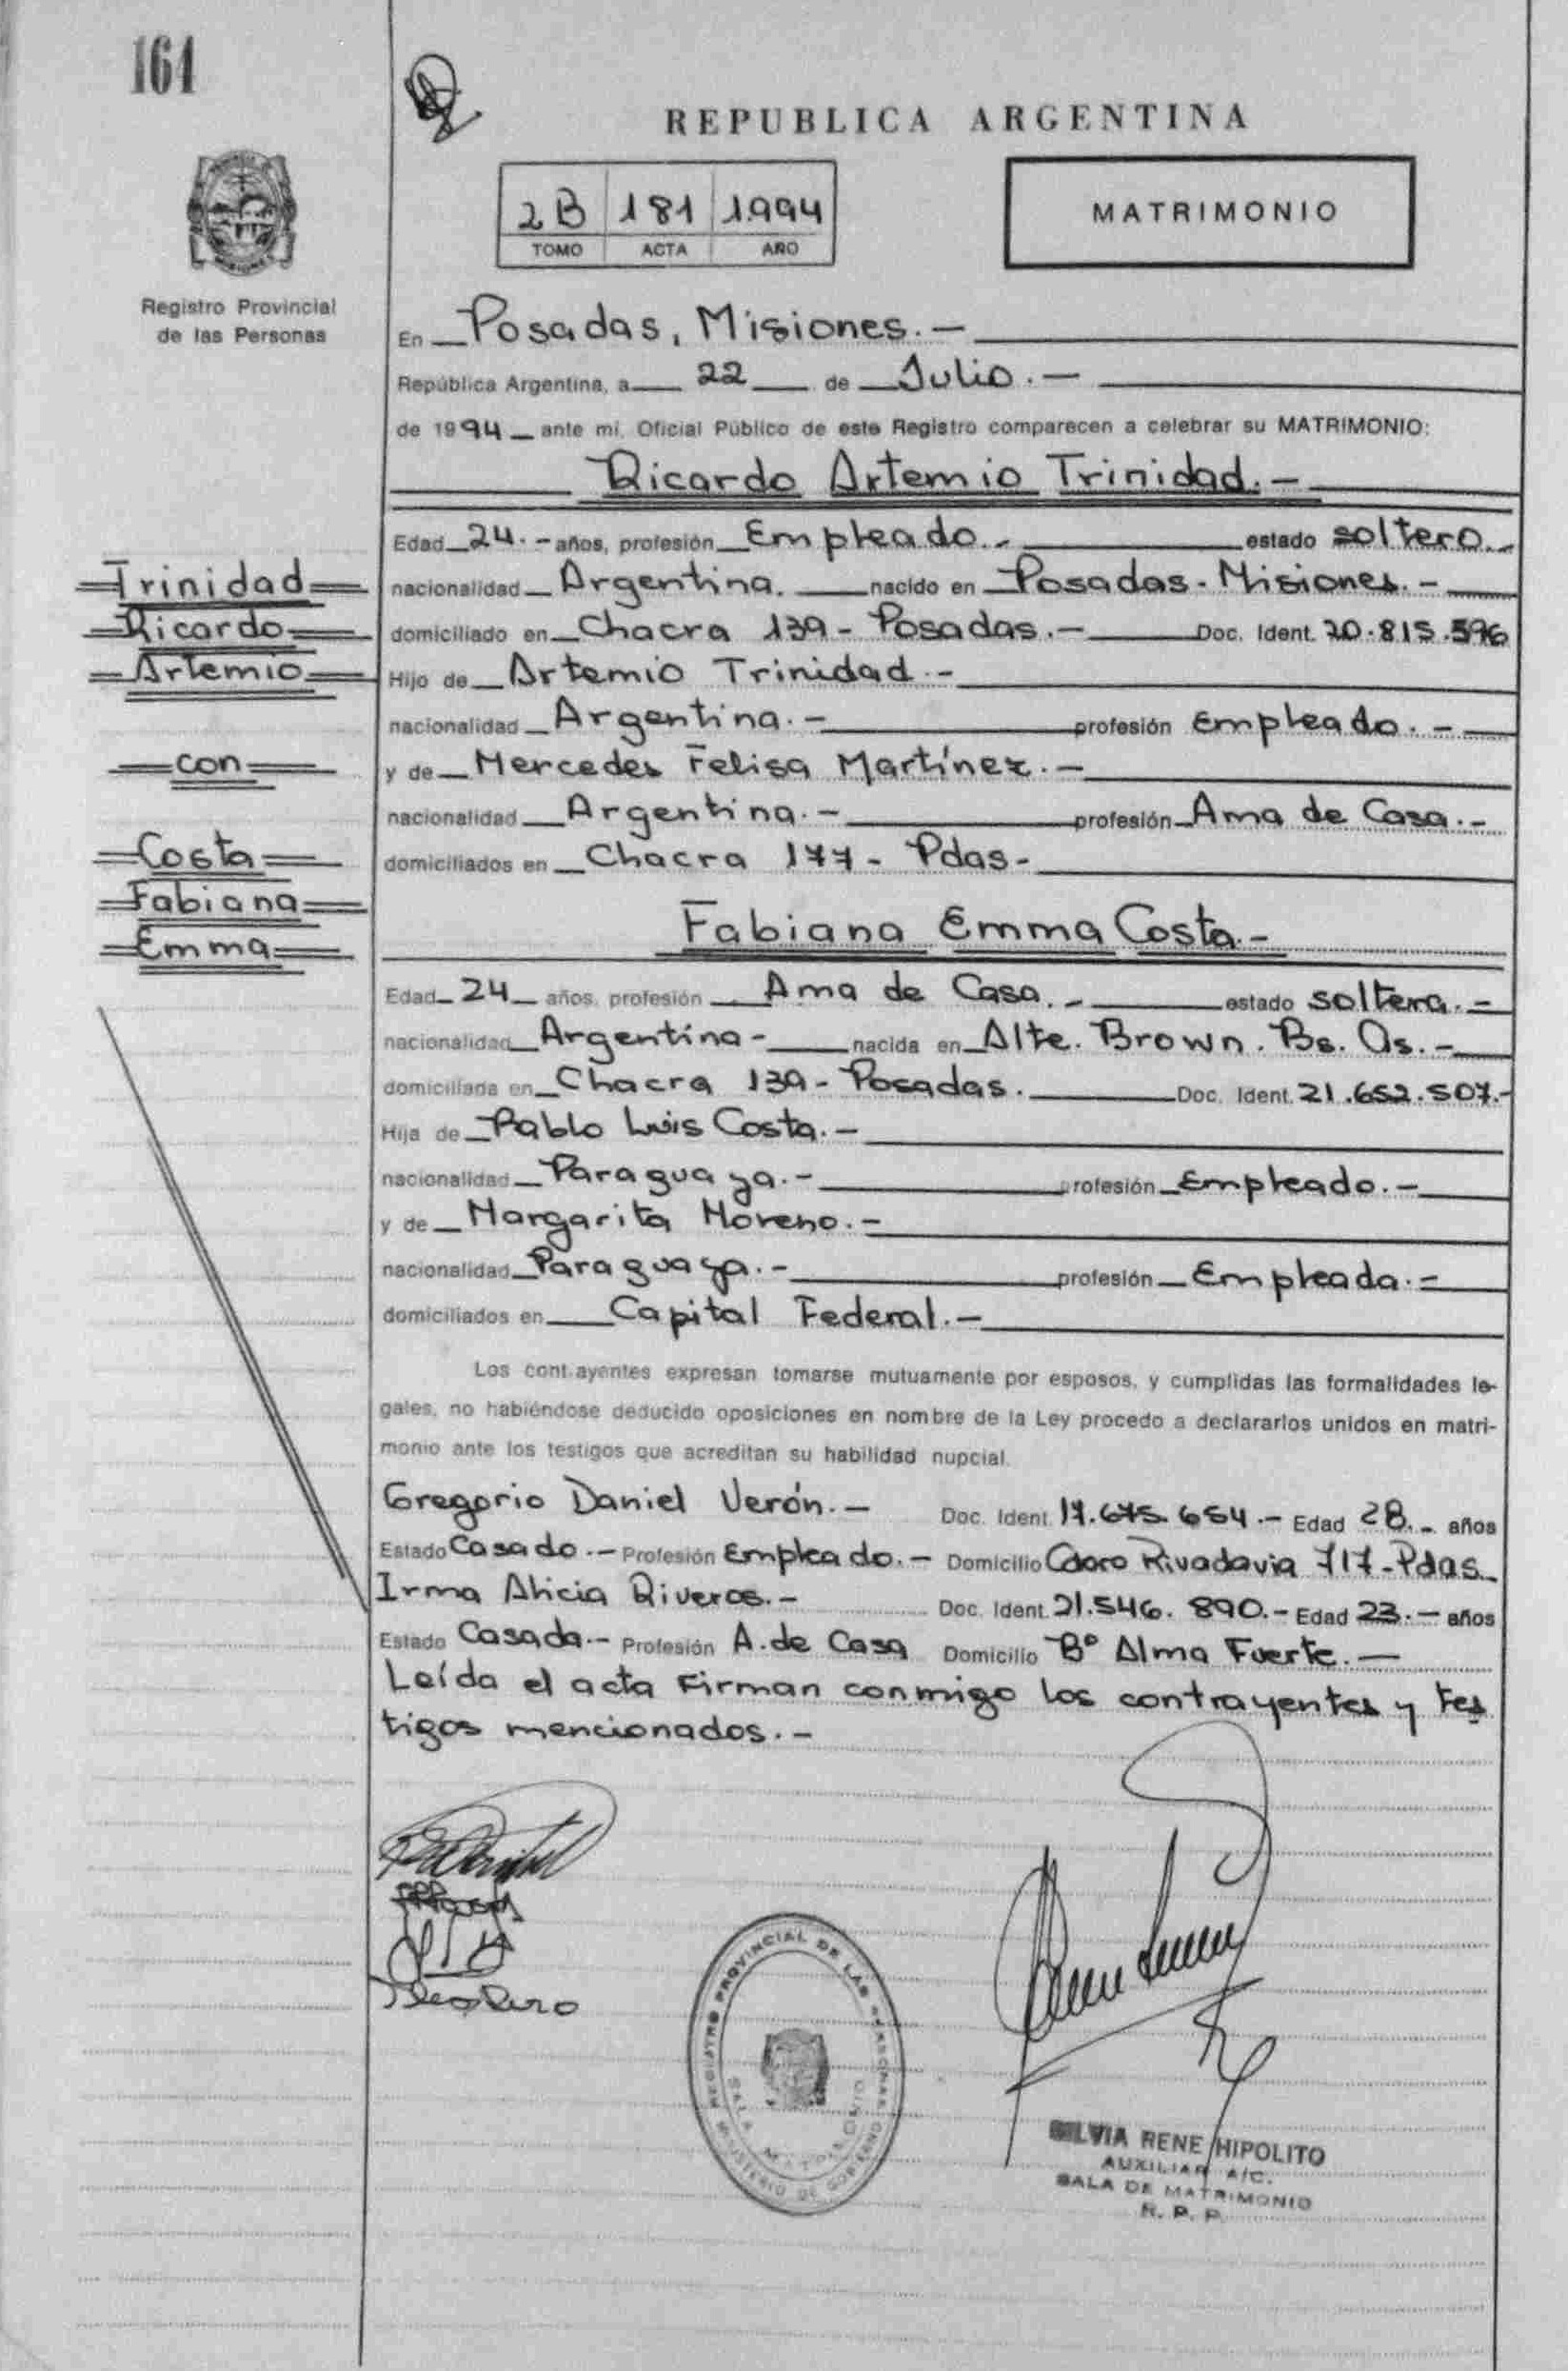 161
REPUBLICA ARGENTINA
2B 181 1994
TOMO ACTA AÑO
MATRIMONIO
Registro Provincial
de las Personas
En Posadas, Misiones.-
República Argentina, a 22 de Julio.-
de 1994 ante mi, Oficial Público de este Registro comparecen a celebrar su MATRIMONIO:
Ricardo Artemio Trinidad.-
Edad 24.- años, profesión Empleado.- estado soltero.-
nacionalidad Argentina. nacido en Posadas-Misiones.-
domiciliado en Chacra 139- Posadas.- Doc. Ident. 20.815.596
Hijo de Artemio Trinidad.-
nacionalidad Argentina.- profesión Empleado.-
y de Mercedes Felisa Martínez.-
nacionalidad Argentina.- profesión Ama de Casa.-
domiciliados en Chacra 177- Pdas-
Trinidad
Ricardo
Artemio
con
Costa
Fabiana
Emma
Fabiana Emma Costa.-
Edad 24 años, profesión Ama de Casa.- estado soltera.-
nacionalidad Argentina- nacida en Alte. Brown. Bs. As.-
domiciliada en Chacra 139- Posadas. Doc. Ident. 21.652.507.-
Hija de Pablo Luis Costa.-
nacionalidad Paraguaya.- profesión Empleado.-
y de Margarita Moreno.-
nacionalidad Paraguaya.- profesión Empleada.-
domiciliados en Capital Federal.-
Los contrayentes expresan tomarse mutuamente por esposos, y cumplidas las formalidades le-
gales, no habiéndose deducido oposiciones en nombre de la Ley procedo a declararlos unidos en matri-
monio ante los testigos que acreditan su habilidad nupcial.
Gregorio Daniel Verón.- Doc. Ident. 17.675.654.- Edad 28.- años
Estado Casado.- Profesión Empleado.- Domicilio Rivadavia 717-Pdas.
Irma Alicia Riveros.- Doc. Ident. 21.546.890.- Edad 23.- años
Estado Casada.- Profesión A. de Casa Domicilio B° Alma Fuerte.-
Leída el acta Firman conmigo los contrayentes y tes
tigos mencionados.-
REGISTRO PROVINCIAL DE LAS PERSONAS
MINISTERIO DE GOBIERNO
SALA MATRIMONIO
SILVIA RENE HIPOLITO
AUXILIAR A/C.
SALA DE MATRIMONIO
R. P. P.